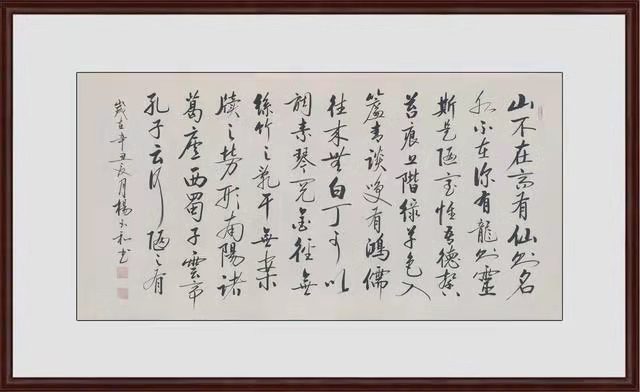 山不在高有仙則名
水不在深有龍則靈
斯是陋室惟吾德馨
苔痕上階綠草色入
簾青談笑有鴻儒
往來無白丁可以
調素琴閱金經無
絲竹之亂耳無案
牘之勞形南陽諸
葛廬西蜀子雲亭
孔子云何陋之有
歲在辛丑月楊書